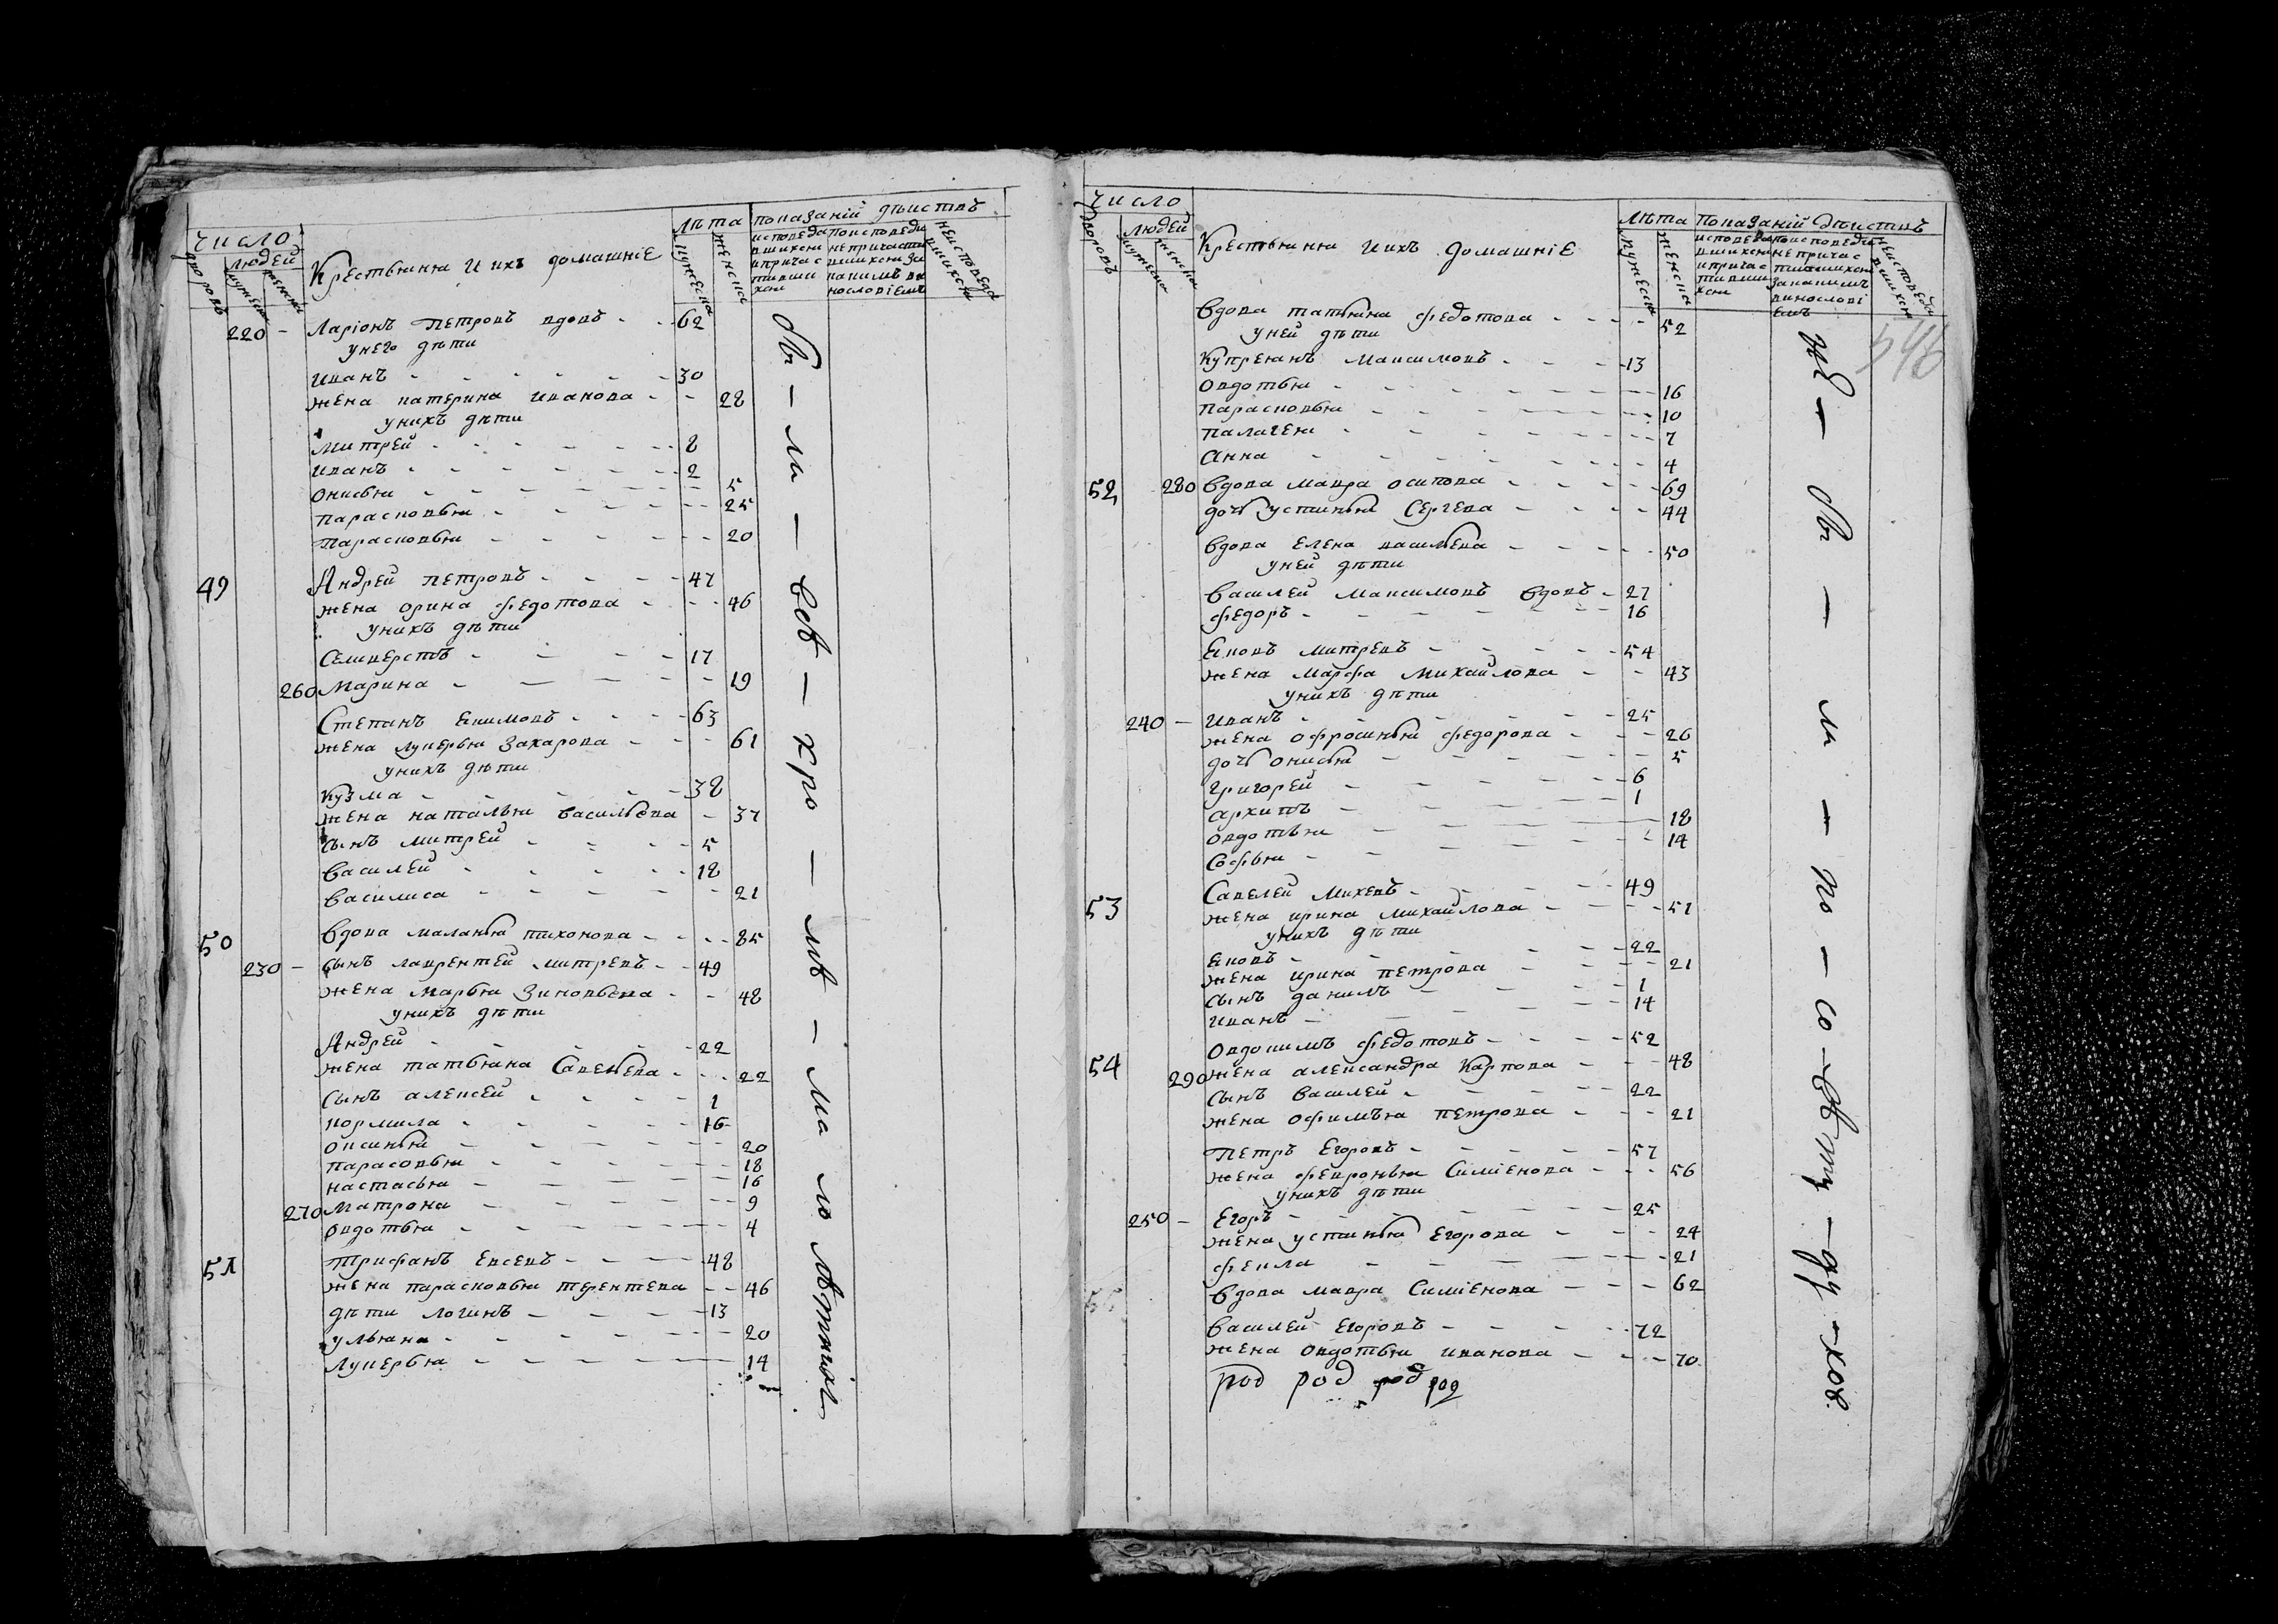 число
людей
дворовъ
мужеска
женска
Крестьяня и ихъ домашніе
лѣта
мужеска
женска
показаній дѣиствъ
исповеда
вшихся
и причас
тивши
хся
по исповеди
не причасти
вшихся за
какимъ ви
нословіемъ
неисповеда
вшихся
220 - Ларіонъ петровъ вдовъ - - 62
у него дѣти
иванъ - - - 30
жена катерина иванова - - 28
у нихъ дѣти
митрей - - - 8
иванъ - - - 2
онисья - - - 5
парасковья - - - 25
парасковья - - - 20
49 Андрей петровъ - - - 47
жена орина федотова - - - 46
у нихъ дѣти
Селиверстъ - - - 17
260 марина - - - 19
Степанъ екимовъ - - - 63
жена лукерья захарова - - - 61
у нихъ дѣти
кузма - - - 38
жена наталья васильева - 37
сынъ митрей - - - 5
василей - - - 18
василиса - - - 21
50 вдова маланья тихонова - - - 85
230 - сынъ лаврентей митревъ - - 49
жена марья зиновьева - - 48
у нихъ дѣти
Андрей - - - 22
жена татьяна Савельева - - - 22
сынъ алексей - - - 1
кормила - - - 16
оксинья - - - 20
парасковья - - - 18
настасья - - - 16
270 матрона - - - 9
овдотья - - - 4
51 трифанъ евсевъ - - - 48
жена парасковья терентева - - 46
дѣти логинъ - - - 13
ульяна - - - 20
лукерья - - - 14
число
людей
дворовъ
мужеска
женска
Крестьяня и ихъ домашніе
лѣта
мужеска
женска
показаній дѣиствъ
исповеда
вшихся
и причас
тивши
хся
по исповеди
не причас
тившихся
за какимъ
винослові
емъ
неисповеда
вшихся
546
вдова татьяна федотова - - - 52
у ней дѣти
куприянъ максимовъ - - - 13
овдотья - - - 16
парасковья - - - 10
палагея - - - 7
анна - - - 4
52 280 вдова мавра осипова - - - 69
дочь устинья Сергева - - - 44
вдова елена васильева - - - 50
у ней дѣти
василей максимовъ вдовъ - 27
федоръ - - - 16
яковъ митревъ - - - 54
жена марфа михайлова - - 43
у нихъ дѣти
240 - иванъ - - - 25
жена офросинья федорова - - - 26
дочь онисья - - - 5
григорей - - - 6
архипъ - - - 1
овдотья - - - 18
софья - - - 14
53 Савелей михевъ - - - 49
жена ирина михайлова - - - 51
у нихъ дѣти
яковъ - - - 22
жена ирина петрова - - - 21
сынъ данилъ - - - 1
иванъ - - - 14
54 овдокимъ федотовъ - - - 52
290 жена александра Карпова - - - 48
сынъ василей - - - 22
жена офимья петрова - - - 21
петръ егоровъ - - - 57
жена февронья Симіенова - - - 56
у нихъ дѣти
250 - егоръ - - - 25
жена устинья егорова - - - 24
фекла - - - 21
55 вдова мавра Симіенова - - - 62
василей егоровъ - - - 72
жена овдотья иванова - - - 70
род род род род